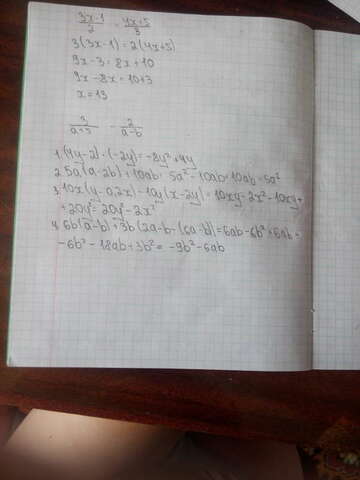 3x-1/2 = 4x+5/3
3(3x-1)=2(4x+5)
9x-3=8x+10
9x-8x=10+3
x=13
3/a-3 - 2/a-b
1. (4y-2)·(-2y)=-8y²+4y
2. 5a(a-2b)+10ab=5a²-10ab+10ab=5a²
3. 10x(y-0,2x)-10y(x-2y)=10xy-2x²-10xy+
+20y²=20y²-2x²
4. 6b(a-b)+3b(2a-b-(6a-b)=6ab-6b²+6ab-
-6b²-18ab+3b²=-9b²-6ab